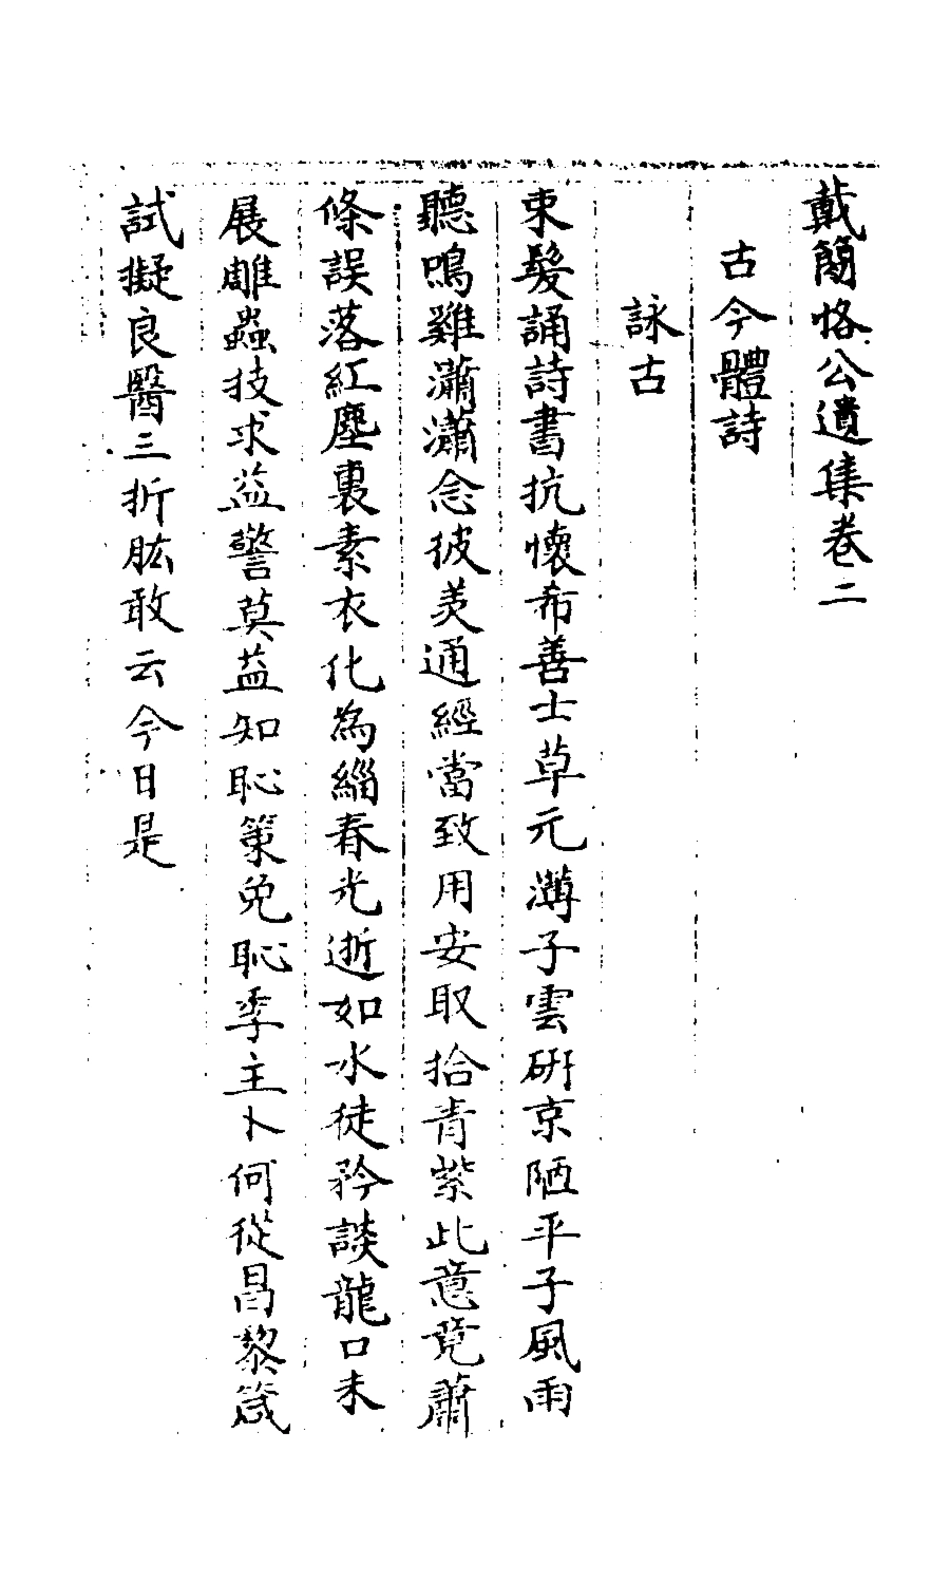 戴簡恪公遺集卷二
古今體詩
詠古
束髮誦詩書抗懷希善士草元薄子雲硏京陋平子風雨
聽鳴雞瀟瀟念彼美通經當致用安取拾青紫此意竟蕭
條誤落紅塵裏素衣化為緇春光逝如水徒矜談龍口未
展雕蟲技求益警莫益知恥策免恥季主卜何從昌黎箴
試擬良醫三折肱敢云今日是